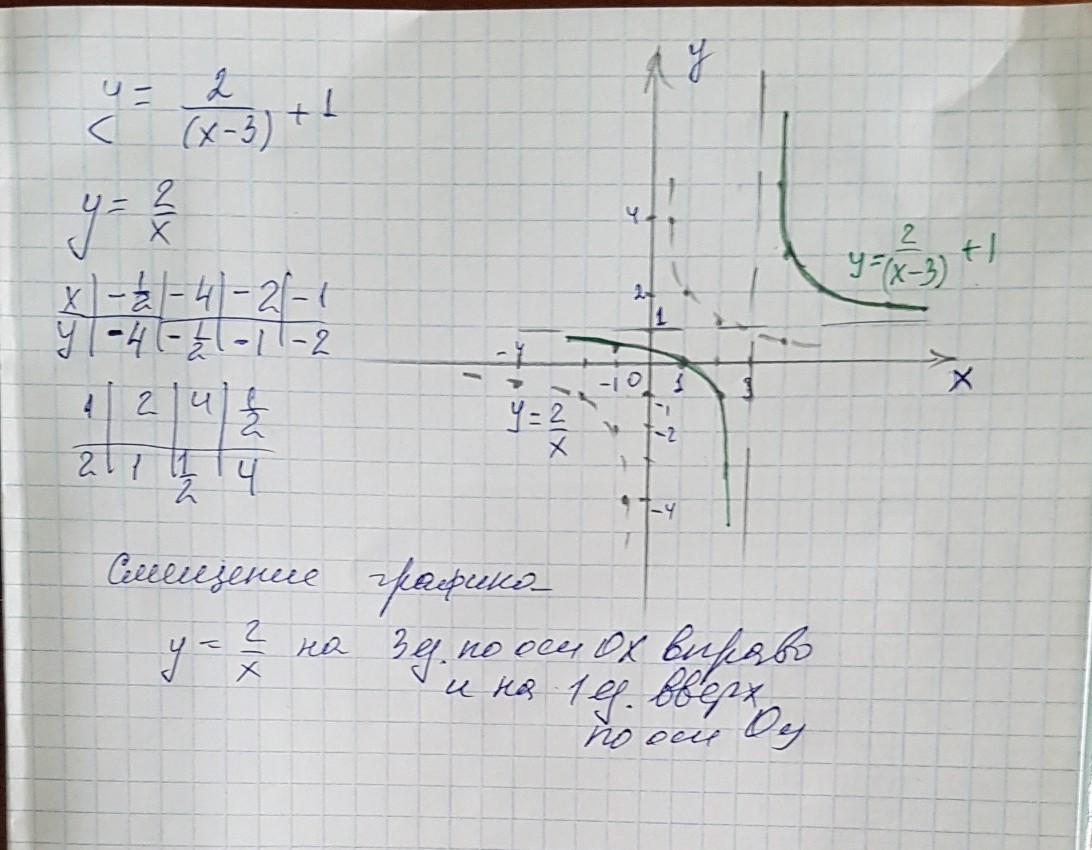 y = 2/(x-3) + 1
y = 2/x
x | -1/2 | -4 | -2 | -1
y | -4 | -1/2 | -1 | -2
1 | 2 | 4 | 1/2
2 | 1 | 1/2 | 4
y
4
2
1
-4
-1
0
1
3
x
-1
-2
-4
y = 2/x
y = 2/(x-3) + 1
Смещение графика
y = 2/x на 3 ед. по оси Ox вправо
и на 1 ед. вверх
по оси Oy